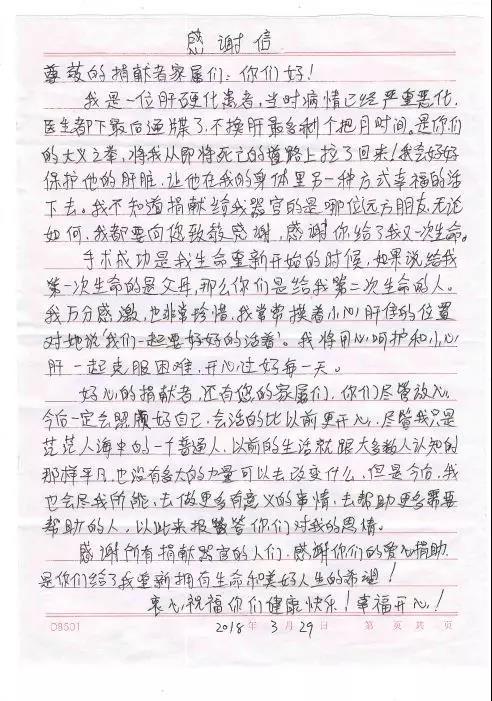 感谢信
尊敬的捐献者家属们：你们好！
我是一位肝硬化患者，当时病情已经严重恶化，
医生都下最后通牒了，不换肝最多剩个把月时间。是你们
的大义之举，将我从即将死亡的道路上拉了回来！我会好好
保护他的肝脏，让他在我的身体里另一种方式幸福的活
下去。我不知道捐献给我器官的是哪位远方朋友，无论
如何，我都要向您致敬感谢，感谢你给了我又一次生命。
手术成功是我生命重新开始的时候，如果说给我
第一次生命的是父母，那么你们是给我第二次生命的人。
我万分感激，也非常珍惜，我常常摸着小心肝住的位置
对她说“我们一起要好好的活着”。我将用心呵护和小心
肝一起克服困难，开心过好每一天。
好心的捐献者，还有您的家属们，你们尽管放心，
今后一定会照顾好自己，会活的比以前更开心，尽管我只是
茫茫人海中的一个普通人，以前的生活就跟大多数人认知的
那样平凡，也没有多大的力量可以去改变什么，但是今后，我
也会尽我所能，去做更多有意义的事情，去帮助更多需要
帮助的人，以此来报答你们对我的恩情。
感谢所有捐献器官的人们，感谢你们的爱心捐助，
是你们给了我重新拥有生命和美好人生的希望！
衷心祝福你们健康快乐！幸福开心！
08501 2018年3月29 第 页 共 页